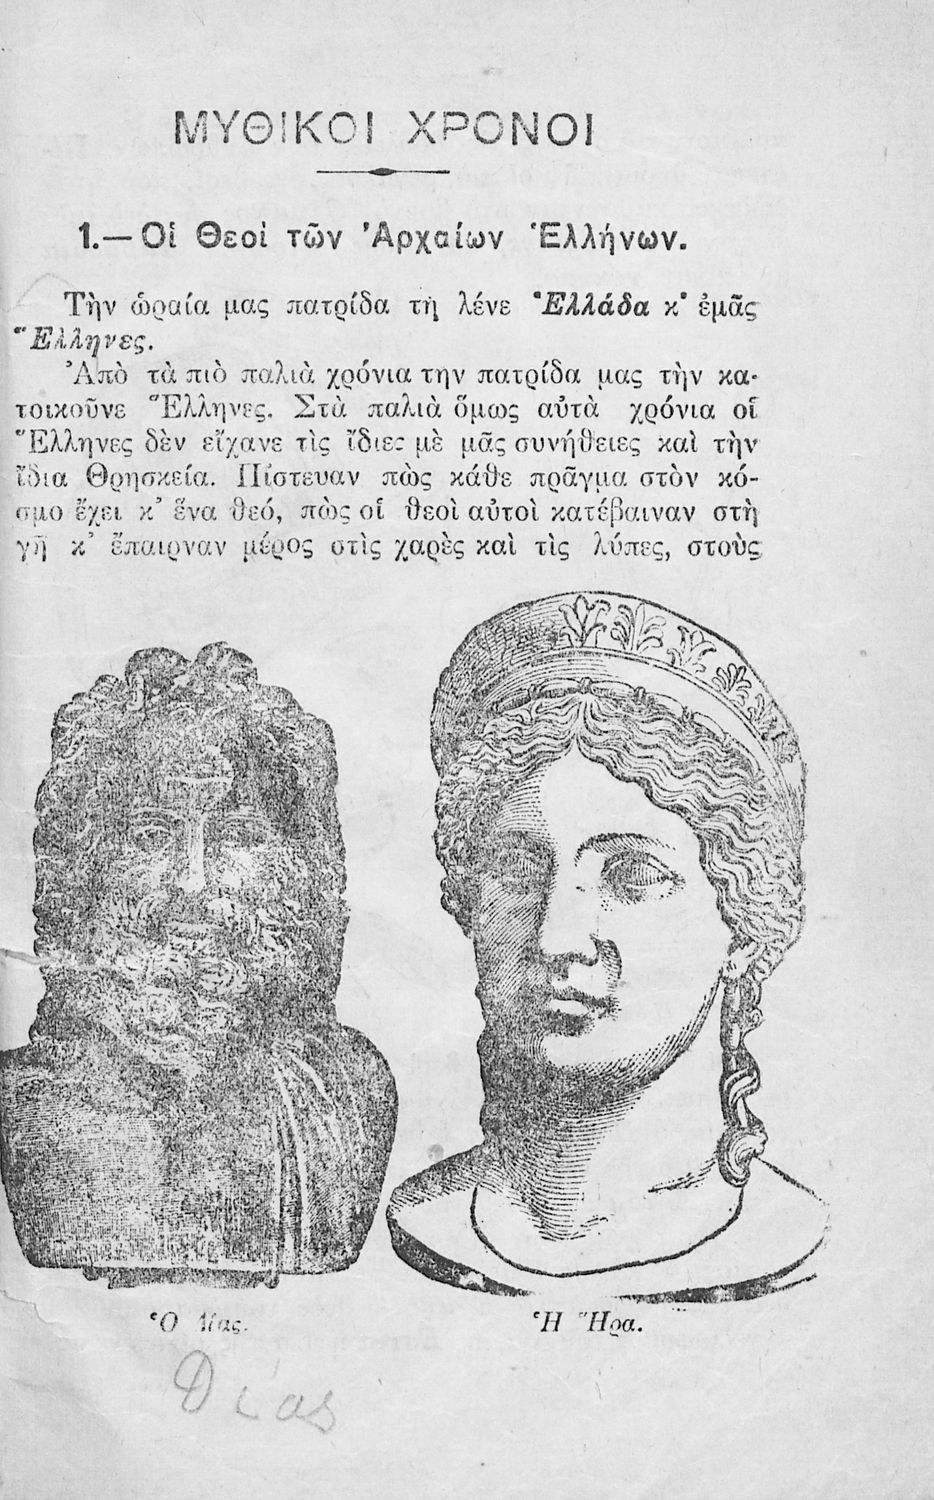 ΜΥΘΙΚΟΙ ΧΡΟΝΟΙ
1.— Οἱ Θεοὶ τῶν Ἀρχαίων Ἑλλήνων.
Τὴν ὡραία μας πατρίδα τὴ λένε Ἑλλάδα κ' ἐμᾶς
Ἕλληνες.
Ἀπὸ τὰ πιὸ παλιὰ χρόνια την πατρίδα μας τὴν κα-
τοικοῦνε Ἕλληνες. Στὰ παλιὰ ὅμως αὐτὰ χρόνια οἱ
Ἕλληνες δὲν εἴχανε τὶς ἴδιες μὲ μᾶς συνήθειες καὶ τὴν
ἴδια Θρησκεία. Πίστευαν πὼς κάθε πρᾶγμα στὸν κό-
σμο ἔχει κ' ἕνα θεό, πὼς οἱ θεοὶ αὐτοὶ κατέβαιναν στὴ
γῆ κ' ἔπαιρναν μέρος στὶς χαρὲς καὶ τὶς λύπες, στοὺς
Ὁ Δίας.
Ἡ Ἥρα.
Δίας